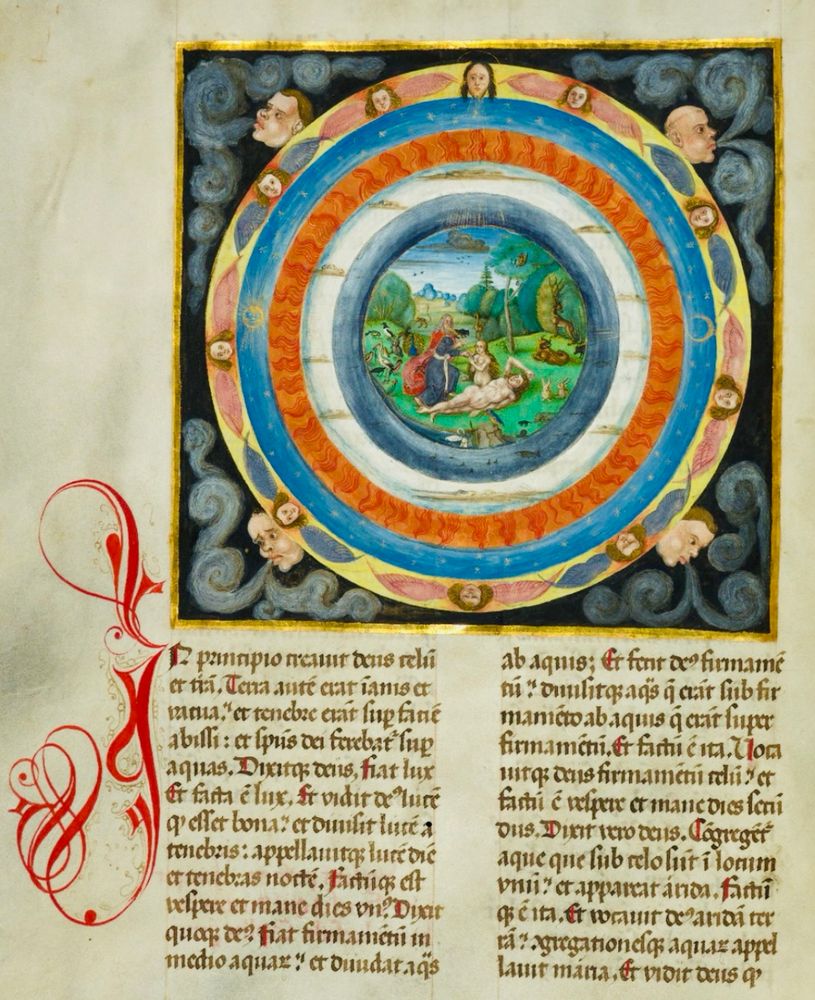 In principio creauit deus celū
et tr̄ā. Terra autē erat īanis et
vacua: et tenebre erāt sup̄ faciē
abissi: et sp̄us dei ferebat᷑ sup̄
aquas. Dixitqꝫ deus. Fiat lux
Et facta ē lux. Et vidit deꝰ lucē
ꝙ esset bona: et diuisit lucē a
tenebris: appellauitqꝫ lucē diē
et tenebras noctē. Factūqꝫ est
vespere et mane dies vnꝰ. Dixit
quoqꝫ deꝰ. Fiat firmamētū in
medio aquaꝝ: et diuidat aq̄s
ab aquis; Et fecit deꝰ firmamē
tū: diuisitqꝫ aq̄s q̄ erāt sub fir
mamēto ab aquis q̄ erāt super
firmamētū. Et factū ē ita. Voca
uitqꝫ deus firmamētū celū: et
factū ē vespere et mane dies secū
dus. Dixit vero deus. Cōgregēt᷑
aque que sub celo sūt ī locum
vnū: et appareat arida. Factū
qꝫ ē ita. Et vocauit deꝰ aridā ter
rā: ꝯgregationesqꝫ aquaꝝ appel
lauit maria. Et vidit deus ꝙ